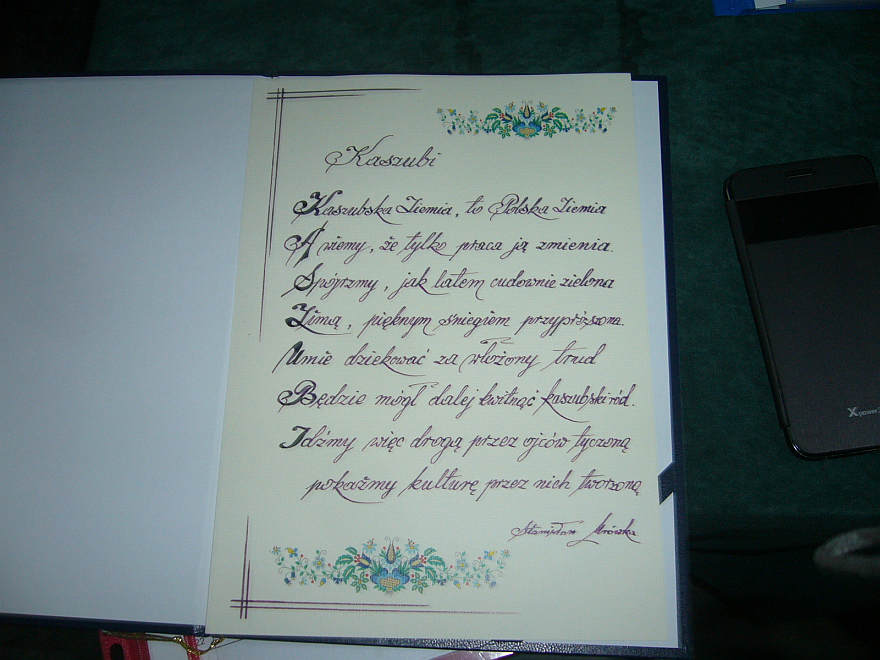 Kaszubi
Kaszubska Ziemia, to Polska Ziemia
A wiemy, że tylko praca ją zmienia.
Spójrzmy, jak latem cudownie zielona
Zimą, pięknym śniegiem przyprószona.
Umie dziekować za włożony trud
Będzie mógł dalej kwitnąć kaszubski ród.
Idźmy więc drogą przez ojców tyczoną
pokażmy kulturę przez nich tworzoną
Stanisław Mrówka
Xpower